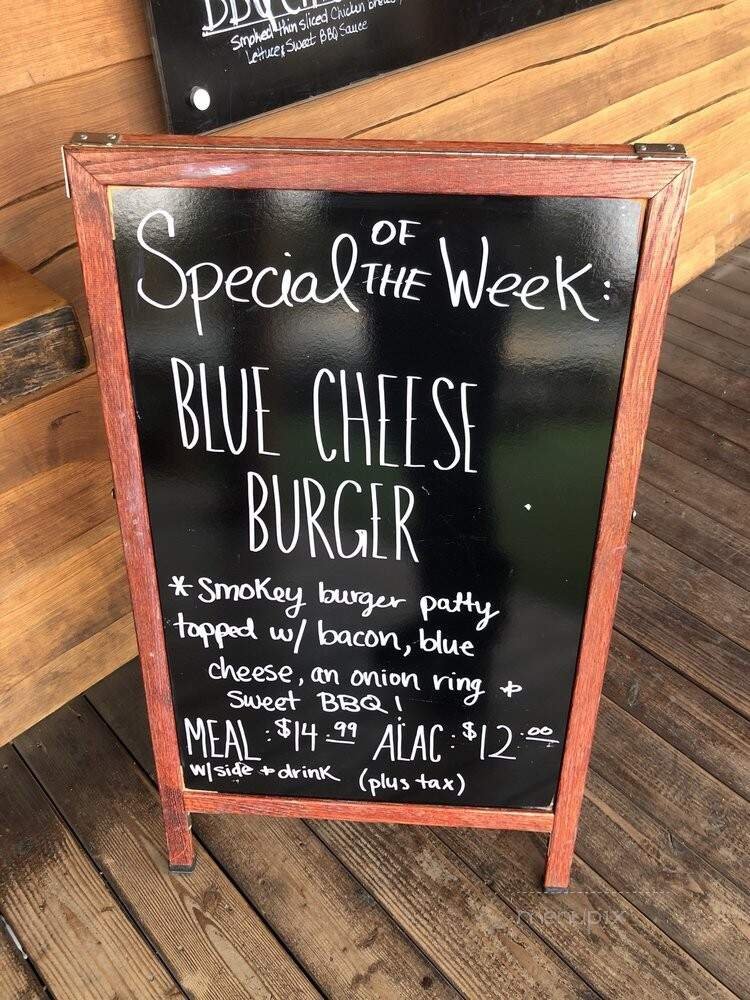 BBQ
Smoked thin sliced Chicken breast,
Lettuce, Sweet BBQ Sauce
Special OF THE Week:
BLUE CHEESE
BURGER
* Smokey burger patty
topped w/ bacon, blue
cheese, an onion ring +
Sweet BBQ!
MEAL: $14.99 ALAC: $12.00
w/side + drink (plus tax)
menupix